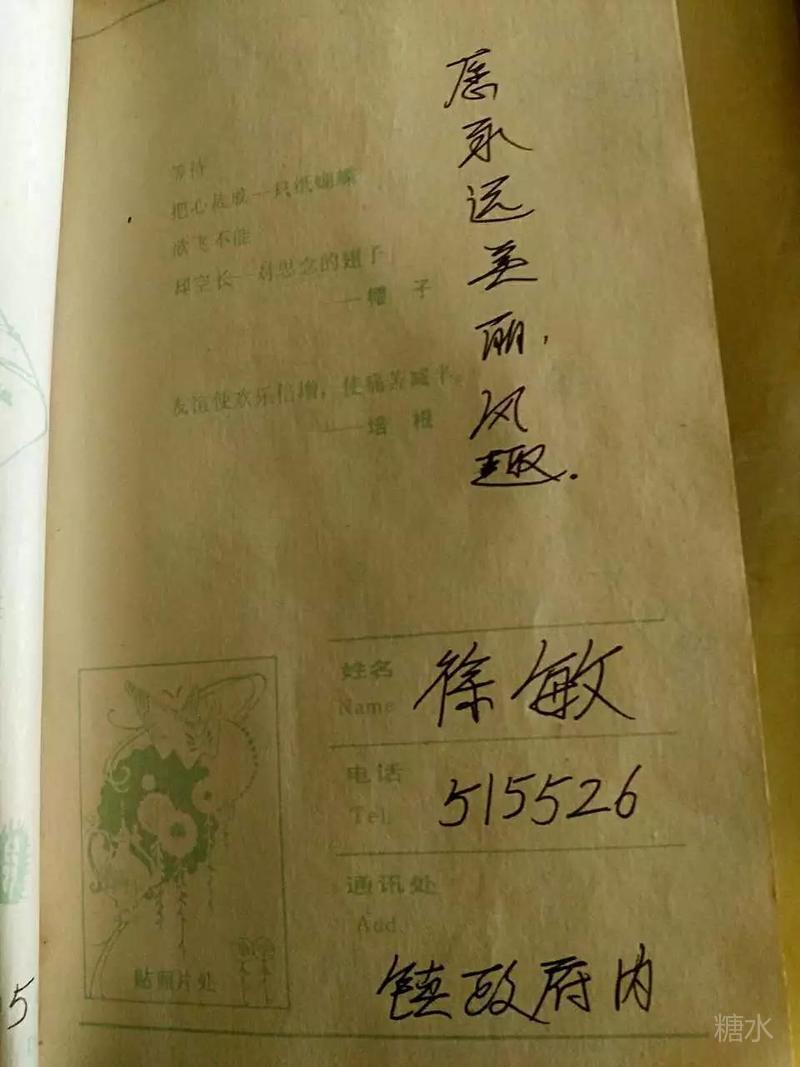 愿永远美丽,风趣.
等待
把心叠成一只纸蝴蝶
欲飞不能
却空长一对思念的翅子
——帽 子
友谊使欢乐倍增,使痛苦减半。
——培 根
姓名
Name
徐敏
电话
Tel.
515526
通讯处
Add.
镇政府内
贴照片处
5
糖水